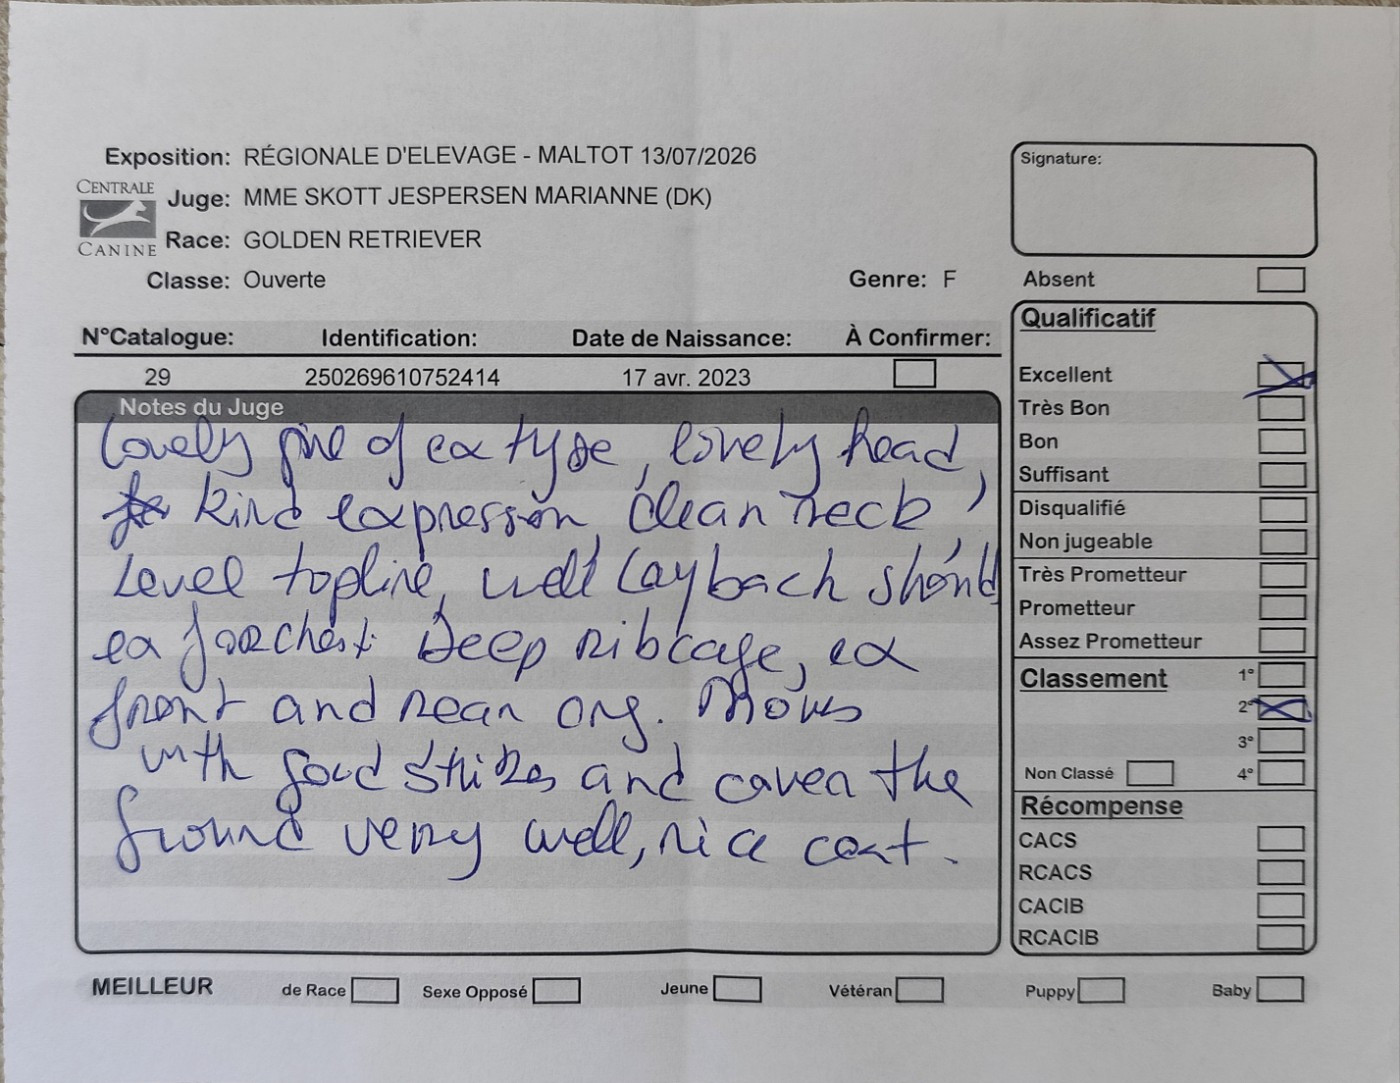 Exposition: RÉGIONALE D'ELEVAGE - MALTOT 13/07/2026
CENTRALE CANINE
Juge: MME SKOTT JESPERSEN MARIANNE (DK)
Race: GOLDEN RETRIEVER
Classe: Ouverte Genre: F
N°Catalogue: Identification: Date de Naissance: À Confirmer:
29 250269610752414 17 avr. 2023
Notes du Juge
Lovely of ex type, lovely head,
kind expression, clean neck,
Level topline, well layback should
ex forchest. Deep ribcage, ex
front and rear ang. Moves
with good strides and cover the
ground very well, nice coat.
Signature:
Absent
Qualificatif
Excellent
Très Bon
Bon
Suffisant
Disqualifié
Non jugeable
Très Prometteur
Prometteur
Assez Prometteur
Classement 1°
2°
3°
Non Classé 4°
Récompense
CACS
RCACS
CACIB
RCACIB
MEILLEUR de Race Sexe Opposé Jeune Vétéran Puppy Baby